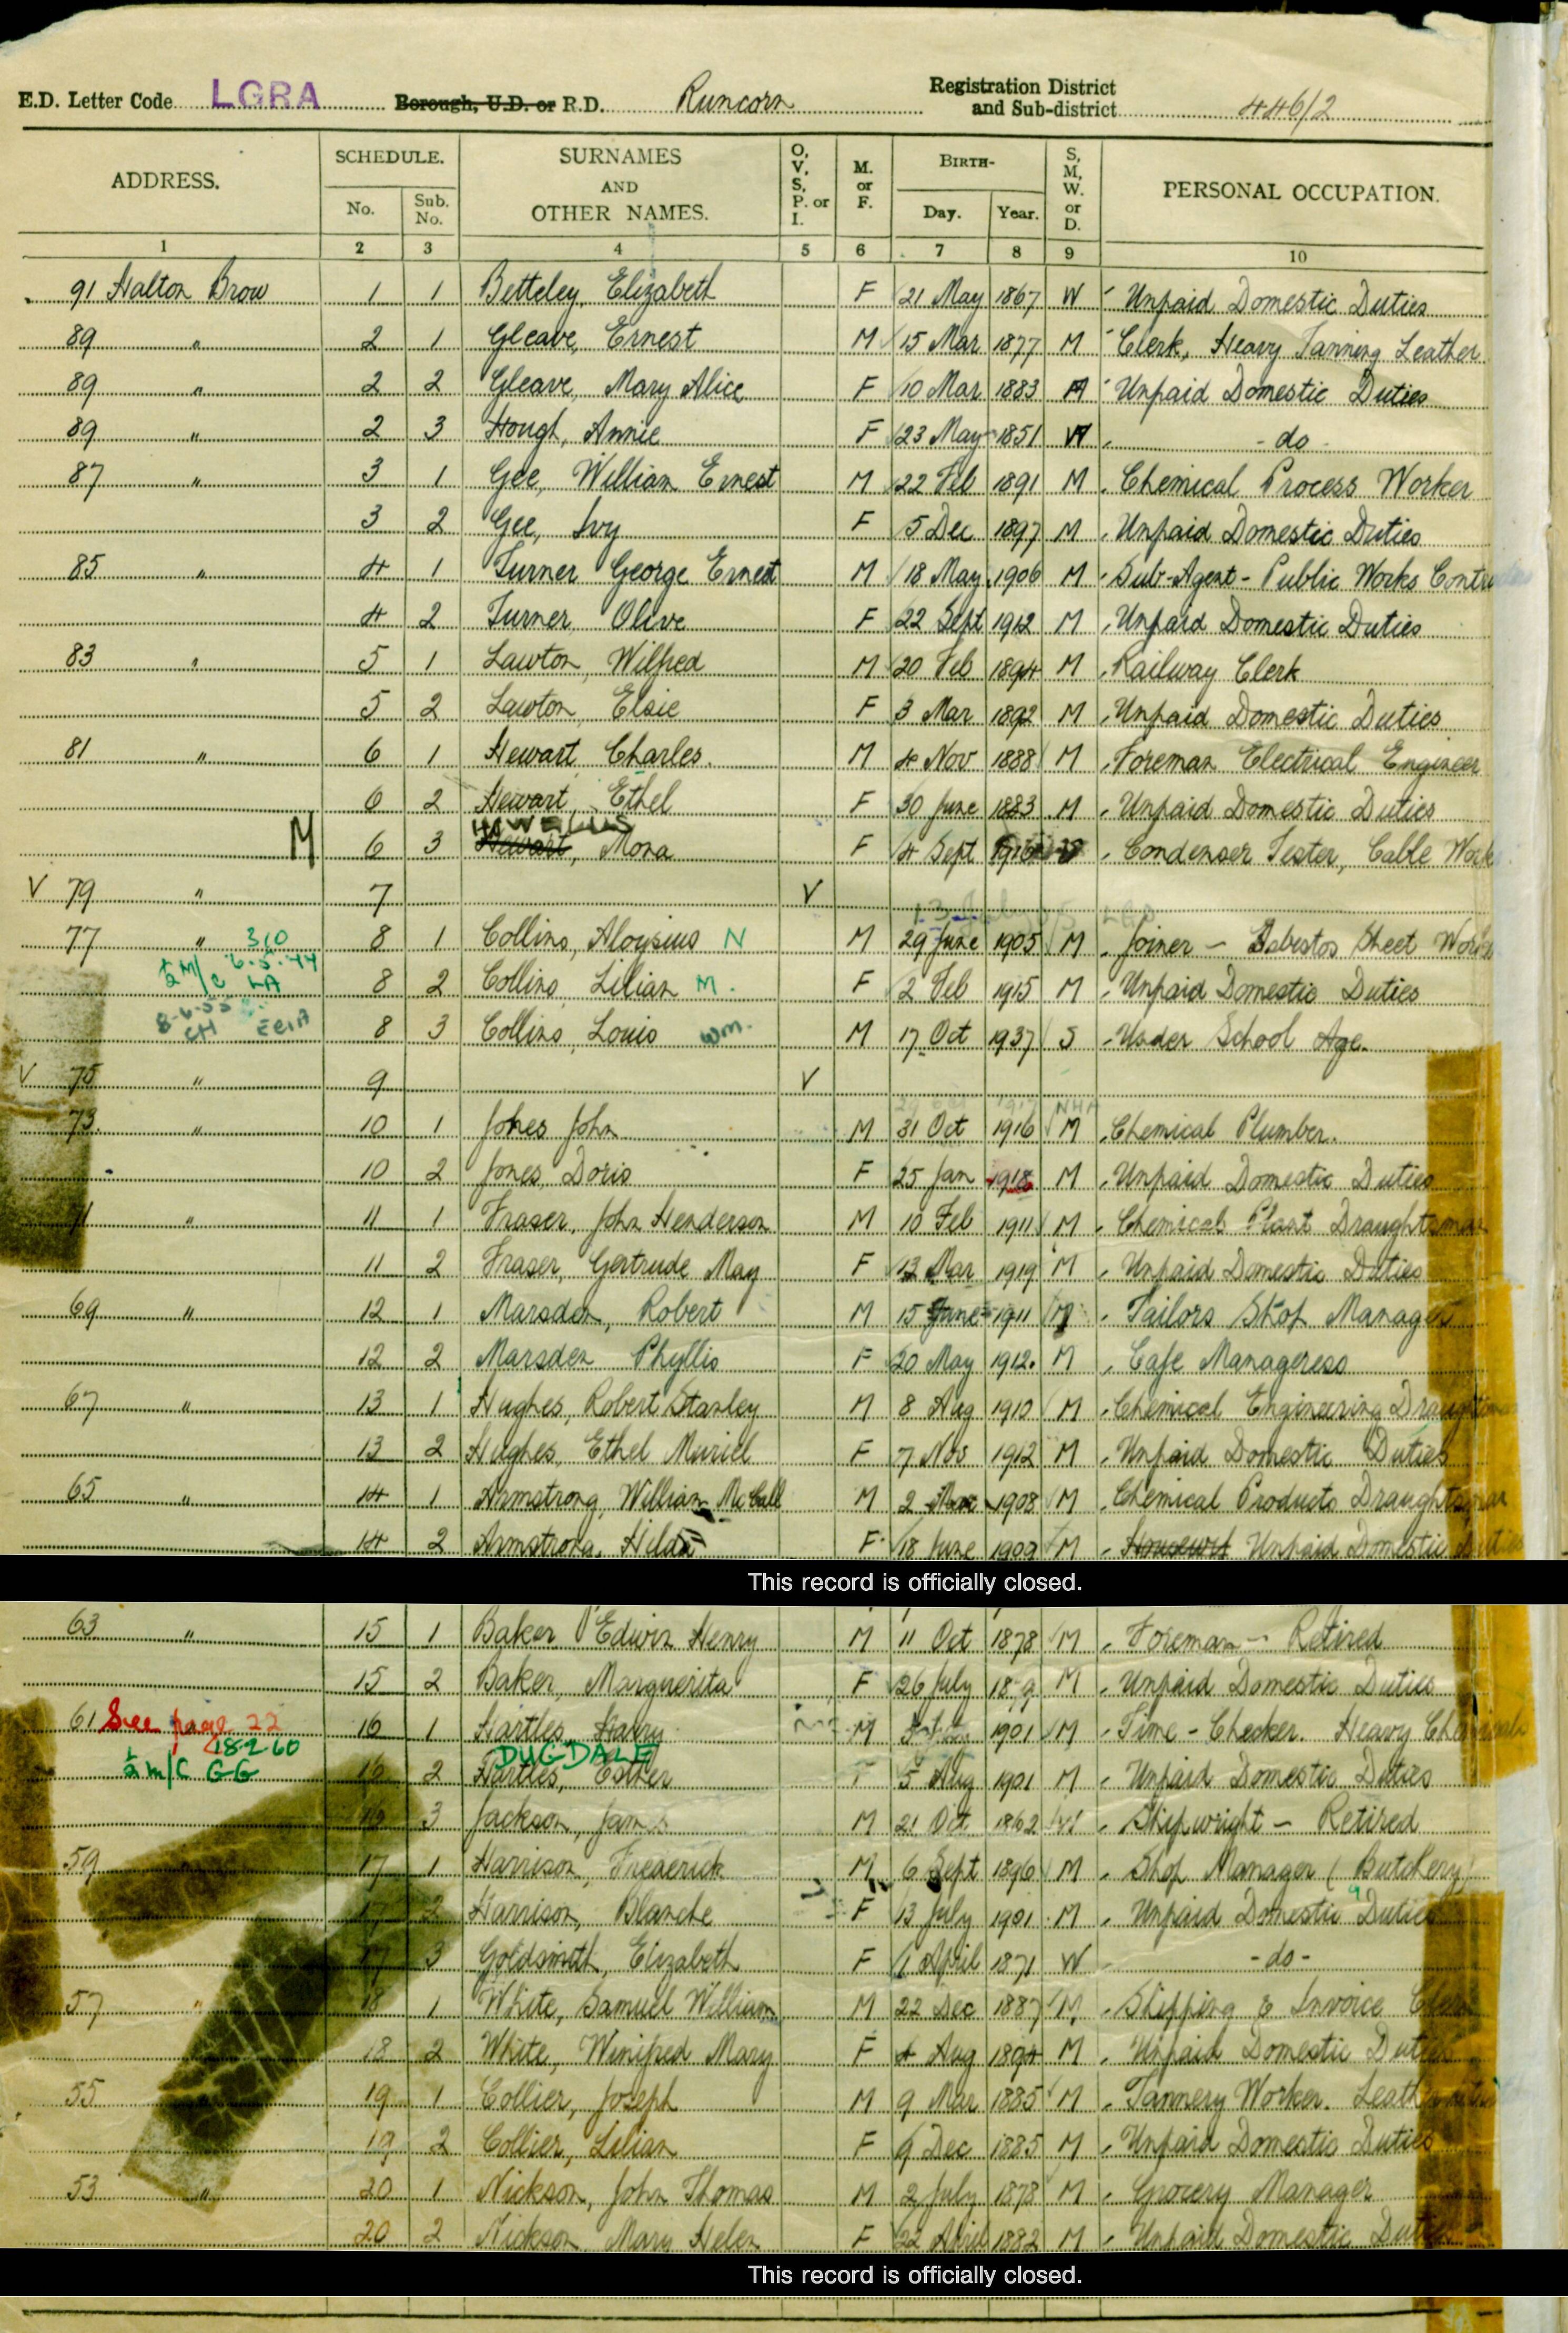 E.D. Letter Code LGRA Borough, U.D. or R.D. Runcorn Registration District and Sub-district 446/2
ADDRESS. SCHEDULE. No. Sub. No. SURNAMES AND OTHER NAMES. O, V, S, P. or I. M. or F. BIRTH- Day. Year. S, M, W. or D. PERSONAL OCCUPATION.
1 2 3 4 5 6 7 8 9 10
91 Halton Brow 1 1 Betteley, Elizabeth F 21 May 1867 W Unpaid Domestic Duties
89 " 2 1 Gleave, Ernest M 15 Mar 1877 M Clerk, Heavy Tanning Leather
89 " 2 2 Gleave, Mary Alice F 10 Mar 1883 M Unpaid Domestic Duties
89 " 2 3 Hough, Annie F 23 May 1851 W - do -
87 " 3 1 Gee, William Ernest M 22 Feb 1891 M Chemical Process Worker
3 2 Gee, Ivy F 5 Dec 1897 M Unpaid Domestic Duties
85 " 4 1 Turner George Ernest M 18 May 1906 M Sub-Agent - Public Works
4 2 Turner Olive F 22 Sept 1912 M Unpaid Domestic Duties
83 " 5 1 Lawton, Wilfred M 20 Feb 1894 M Railway Clerk
5 2 Lawton, Elsie F 3 Mar 1892 M Unpaid Domestic Duties
81 " 6 1 Hewart Charles. M 4 Nov 1888 M Foreman Electrical Engineer
6 2 Hewart, Ethel F 30 June 1883 M Unpaid Domestic Duties
M 6 3 Hewart, Mona F 4 Sept Condenser Tester, Cable Work
V 79 " 7 V
77 " 310 8 1 Collins, Aloysius N M 29 June 1905 M Joiner - Asbestos Sheet Works
½ M/C 6.5.44 LA 8 2 Collins, Lilian M. F 2 Feb 1915 M Unpaid Domestic Duties
8-6-55 CH 8 3 Collins, Louis Wm. M 17 Oct 1937 S Under School Age.
V 75 " 9 V
73. " 10 1 Jones John M 31 Oct 1916 M Chemical Plumber.
10 2 Jones, Doris F 25 Jan 1918 M Unpaid Domestic Duties
71 " 11 1 Fraser, John Henderson M 10 Feb 1911 M Chemical Plant Draughtsman
11 2 Fraser, Gertrude May F 13 Mar 1919 M Unpaid Domestic Duties
69 " 12 1 Marsden, Robert M 15 June 1911 M Tailors Shop Manager
12 2 Marsden Phyllis F 20 May 1912. M Cafe Manageress
67 " 13 1 Hughes, Robert Stanley M 8 Aug 1910 M Chemical Engineering
13 2 Hughes, Ethel Muriel F 7 Nov 1912 M Unpaid Domestic Duties
65 " 14 1 Armstrong, William McCall M 2 1908 M Chemical Products Draughtsman
14 2 Armstrong, Hilda F 18 June 1909 M Housewife Unpaid Domestic Duties
This record is officially closed.
63 " 15 1 Baker Edwin Henry M 11 Oct 1878 M Foreman - Retired
15 2 Baker, Marguerita F 26 July M Unpaid Domestic Duties
61 See page 22 16 1 Hartles, Harry M 1901 M Time-Checker. Heavy Chemicals
18 2 60
DUGDALE
½ m/C GG 16 2 Hartles, Esther F 5 Aug 1901 M Unpaid Domestic Duties
16 3 Jackson, James M 21 Oct 1862 W Shipwright - Retired
59 17 1 Harrison, Frederick M 6 Sept 1896 M Shop Manager (Butchery)
17 2 Harrison, Blanche F 13 July 1901 M Unpaid Domestic Duties
17 3 Goldsmith, Elizabeth F 1 April 1871 W - do -
57 " 18 1 White, Samuel William M 22 Dec 1887 M Shipping & Invoice Clerk
18 2 White, Winifred Mary F 4 Aug 1894 M Unpaid Domestic Duties
55 " 19 1 Collier, Joseph M 9 Mar 1885 M Tannery Worker.
19 2 Collier, Lilian F 9 Dec 1885 M Unpaid Domestic Duties
53 " 20 1 Nickson, John Thomas M 2 July 1878 M Grocery Manager
20 2 Nickson, Mary Helen F 22 April 1882 M Unpaid Domestic Duties
This record is officially closed.